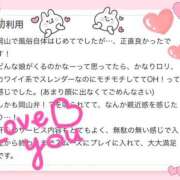 初利用
岡山で風俗自体はじめてでしたが…、正直良かったで
す!
どんな娘がくるのかなーって思ってたら、かなりロリ、
カワイイ系でスレンダーなのにモチモチしててOH!って
感じでした。(あまり顔に出なくてごめんなさい)
しかも岡山弁!?を喋られてて、なんか親近感を感じた
love
you
サービス内容もとてもよく、無駄の無い感じで入
ーズにプレイに入れて、大大満足
です。